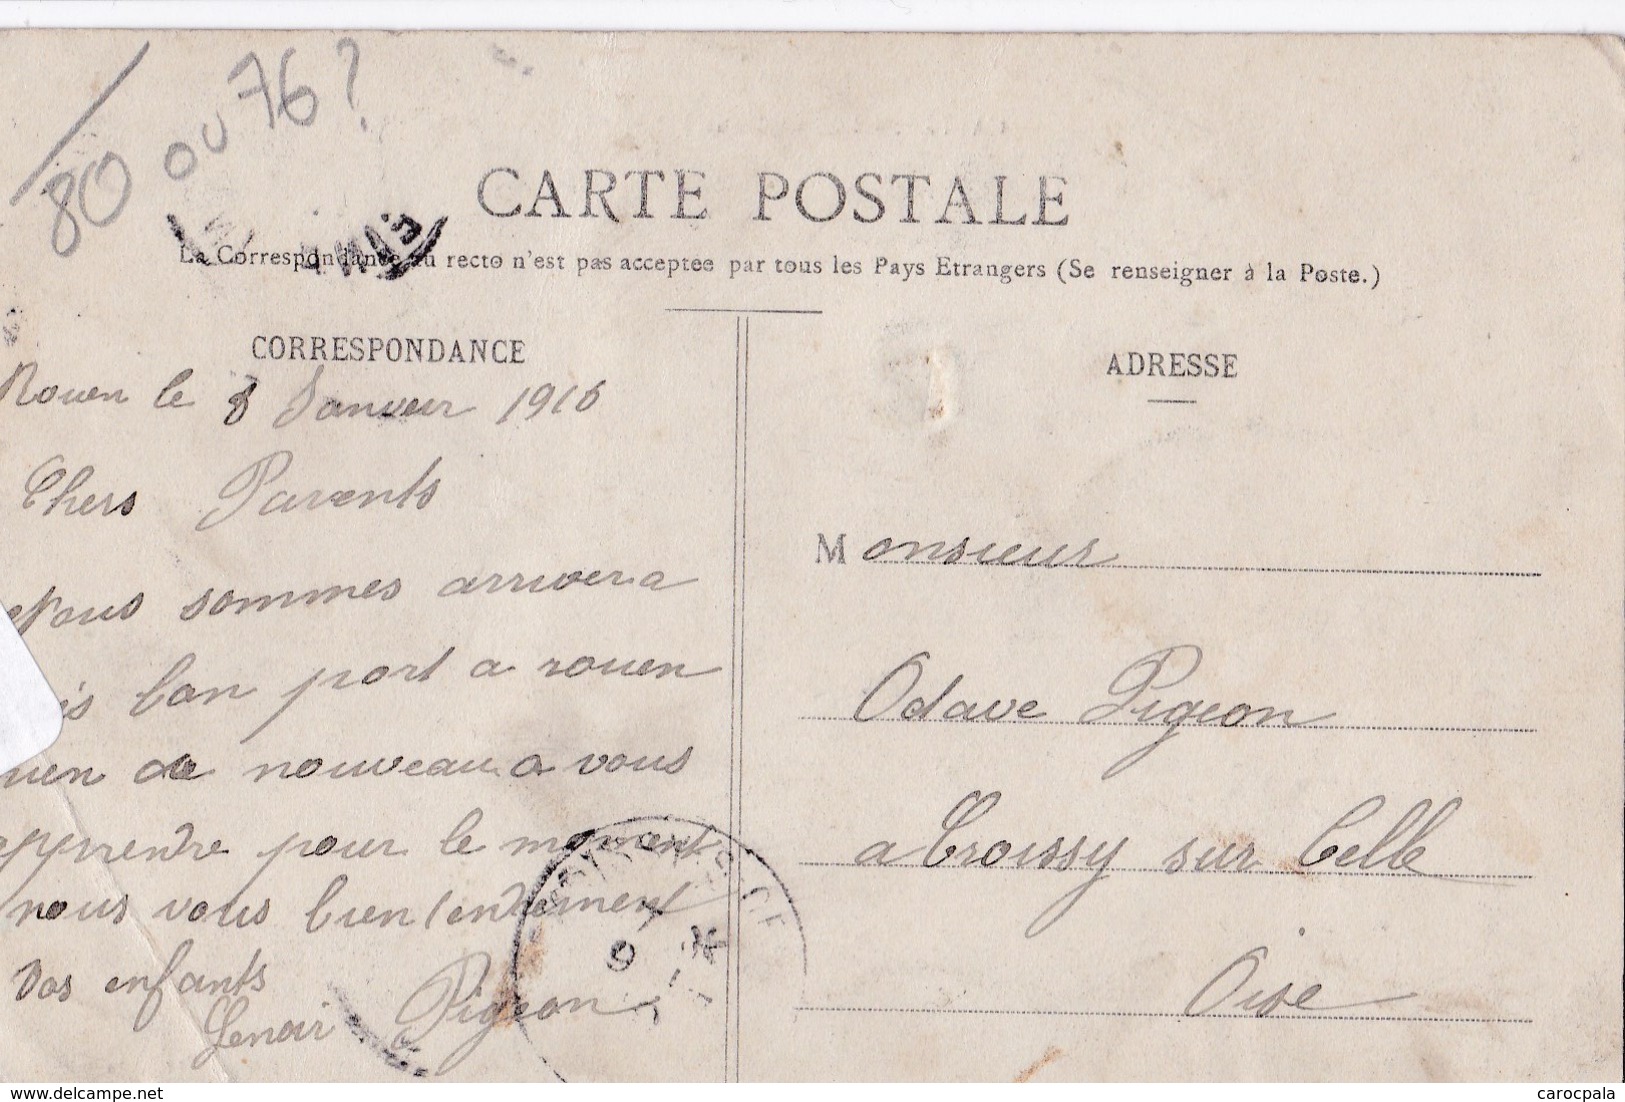 80 ou 76 ?
CARTE POSTALE
La Correspondance au recto n'est pas acceptee par tous les Pays Etrangers (Se renseigner à la Poste.)
CORRESPONDANCE
ADRESSE
Rouen le 8 Janvier 1916
Chers Parents
Nous sommes arriver a
bon port a rouen
rien de nouveau a vous
apprendre pour le moment
nous vous bien
vos enfants
Lenoir Pigeon
Monsieur
Octave Pigeon
a Croissy sur Celle
Oise
www.delcampe.net
carocpala